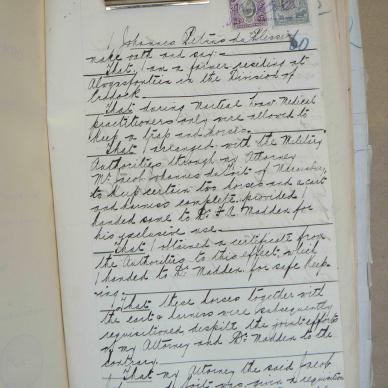 I Johannes Petrus du Plessis
make oath and say:-
That I am a farmer residing at
in the Division of
Cradock.
That during Martial Law Medical
practitioners only were allowed to
keep a trap and horses.
That I arranged with the Military
Authorities through my Attorney
Mr Jacob Johannes de Wit of Maraisburg
to keep certain two horses and a cart
and harness complete provided I
handed same to Dr F. A. Madden for
his exclusive use.
That I obtained a certificate from
the Authorities to this effect, which
I handed to Dr Madden for safe keep
ing.
That these horses together with
the cart & harness were subsequently
requisitioned despite the joint efforts
of my Attorney and Dr Madden to the
contrary.
That my Attorney the said Jacob
was given a requisition